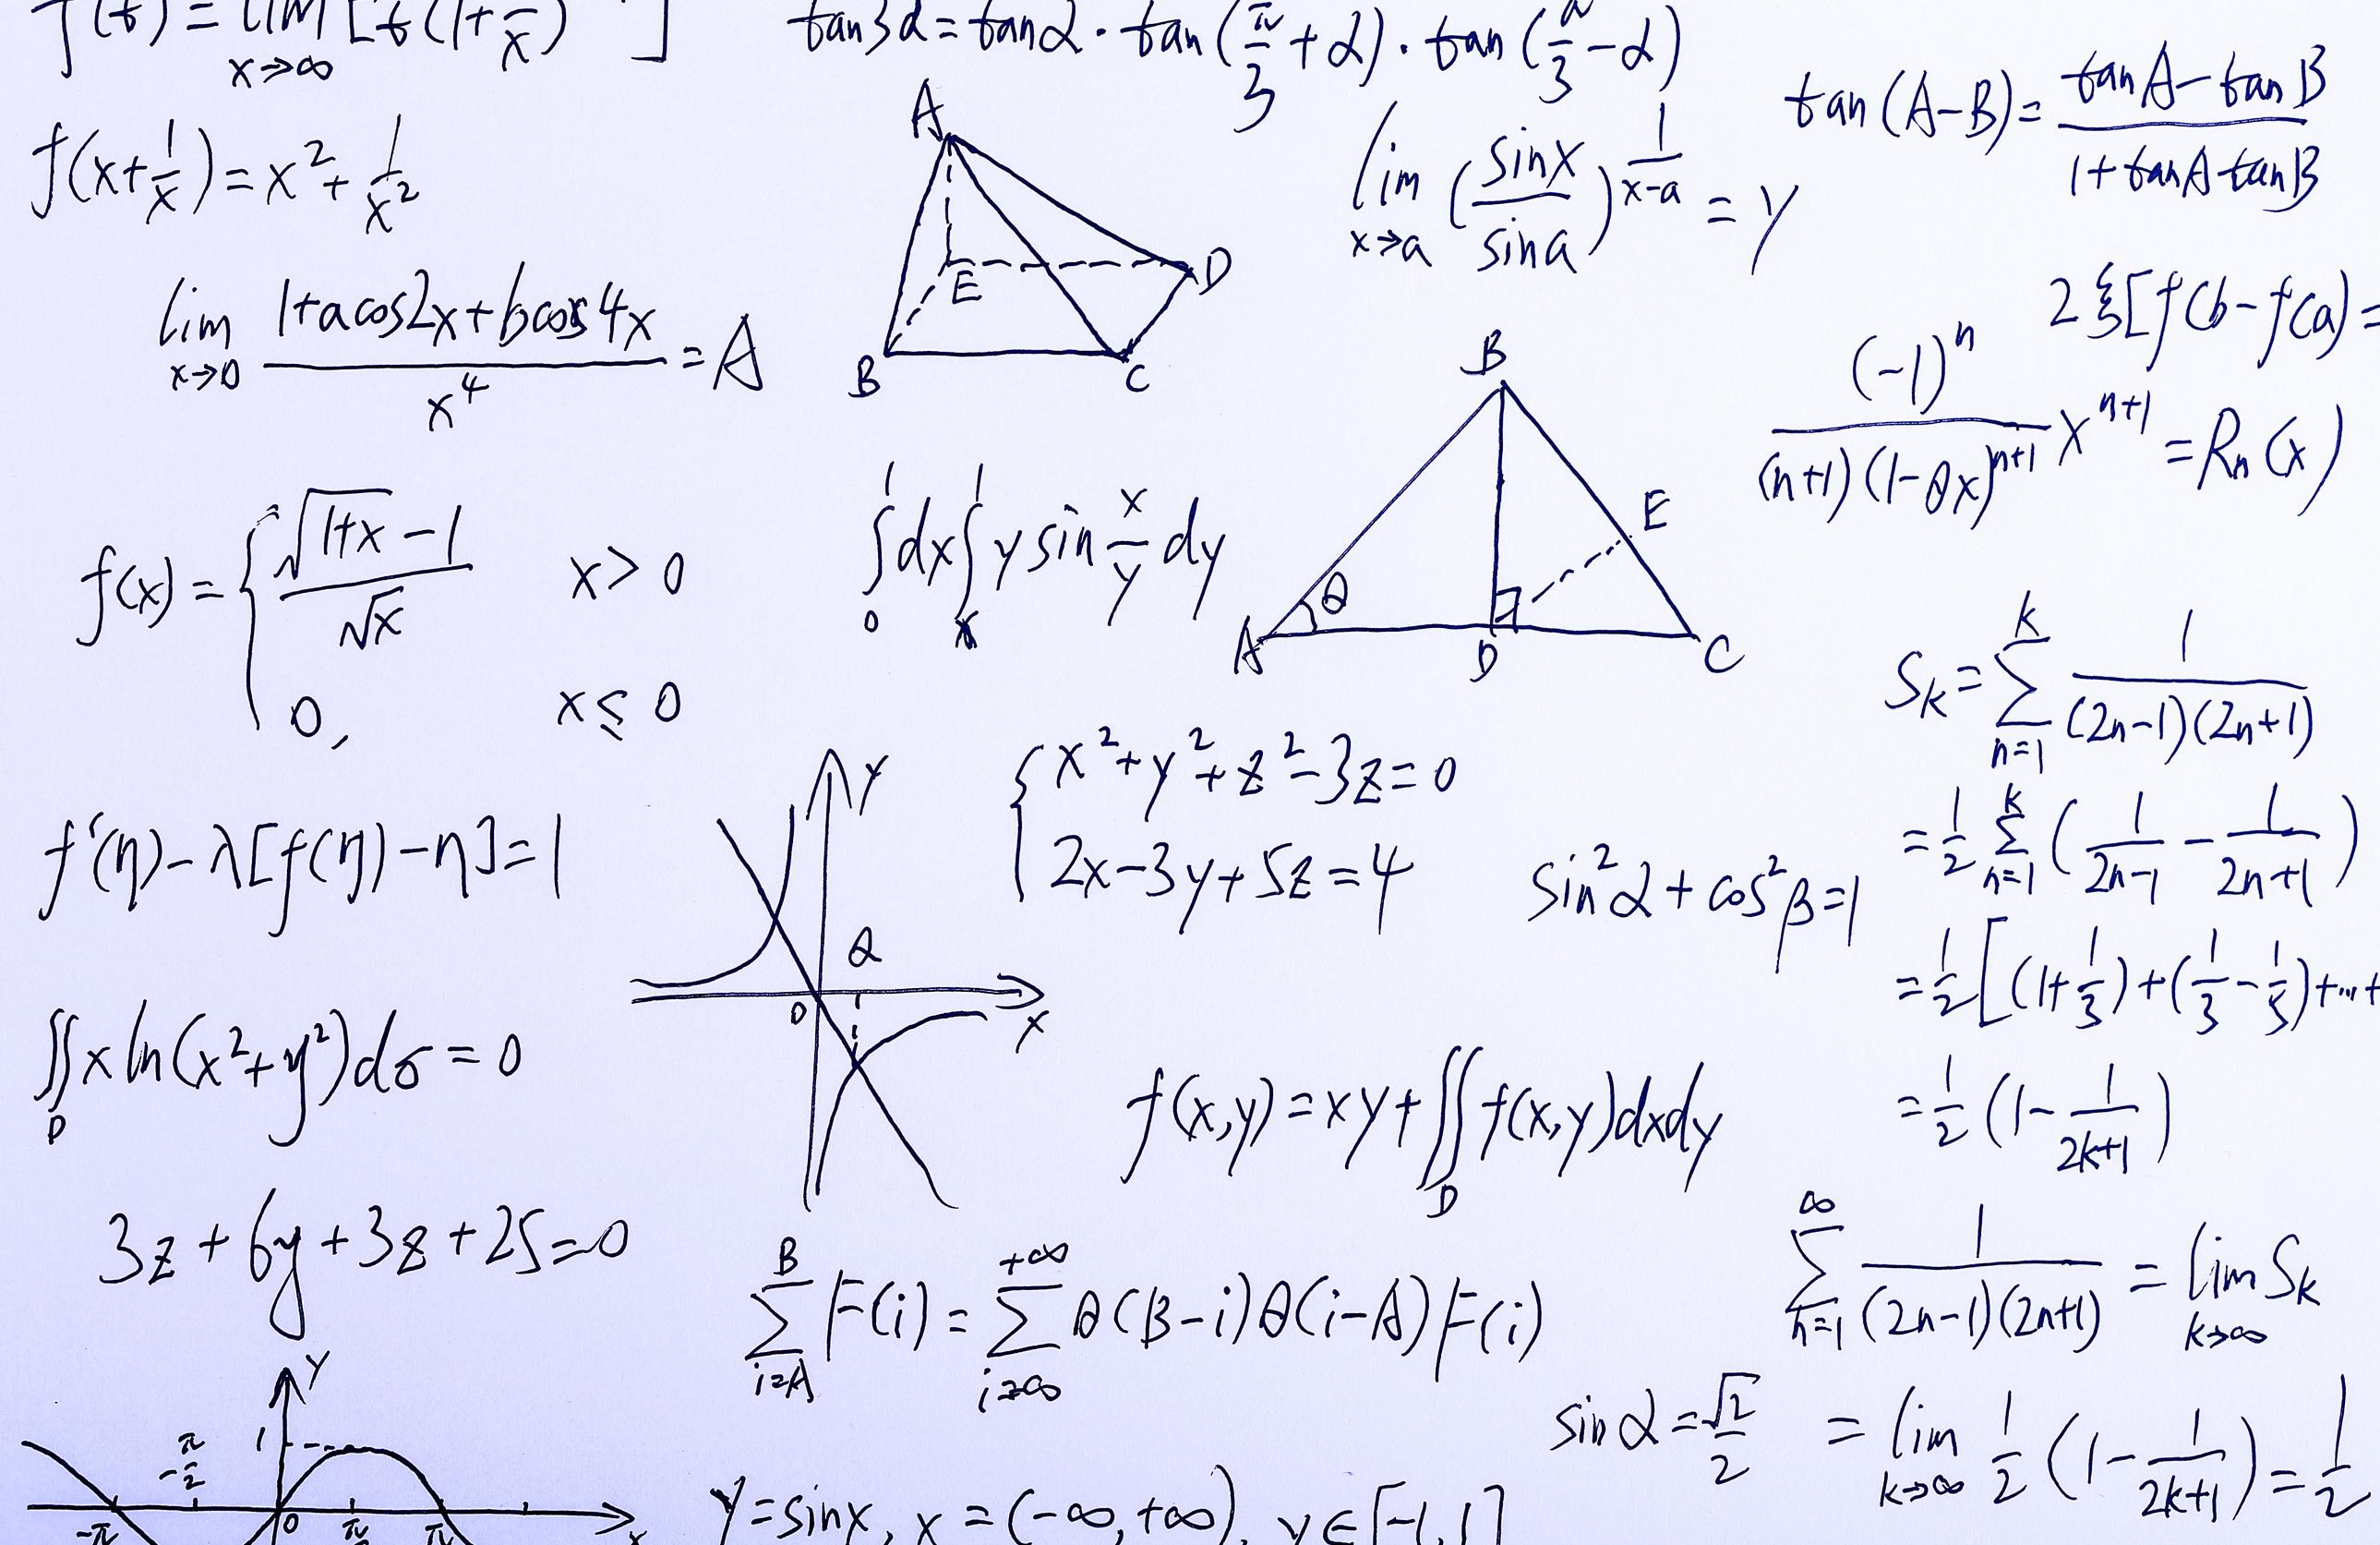 f(t) = lim x→∞ [t(1+1/x) ]
tan3α = tanα · tan(π/3 + α) · tan(π/3 - α)
tan(A-B) = (tanA - tanB)/(1 + tanA tanB)
f(x+1/x) = x² + 1/x²
A
E
D
B
C
lim x→a (sinx/sina)^(1/(x-a)) = y
2ξ[f(b-f(a)=
lim x→0 (1+acos2x+bcos4x)/x⁴ = A
(-1)ⁿ/((n+1)(1-θx)ⁿ⁺¹) xⁿ⁺¹ = Rn(x)
B
E
θ
A
D
C
f(x) = { (√(1+x) - 1)/√x x > 0
0, x ≤ 0
∫₀¹ dx ∫ₓ¹ y sin x/y dy
Sk = Σ n=1 k 1/((2n-1)(2n+1))
= 1/2 Σ n=1 k (1/(2n-1) - 1/(2n+1))
= 1/2 [(1+1/3) + (1/3 - 1/5) + ... +
= 1/2 (1 - 1/(2k+1))
{ x² + y² + z² - 3z = 0
2x - 3y + 5z = 4
sin²α + cos²β = 1
f'(η) - λ[f(η) - η] = 1
Y
Q
0
X
∬D x ln(x²+y²)dσ = 0
f(x,y) = xy + ∬D f(x,y)dxdy
3z + 6y + 3z + 25 = 0
Σ i=A B F(i) = Σ i=∞ +∞ θ(B-i)θ(i-A)F(i)
Σ n=1 ∞ 1/((2n-1)(2n+1)) = lim k→∞ Sk
= lim k→∞ 1/2 (1 - 1/(2k+1)) = 1/2
sinα = √2/2
Y
1
-π/2
-π
0
π/2
π
x
Y = sinx, x = (-∞, +∞), y ∈ [-1, 1]